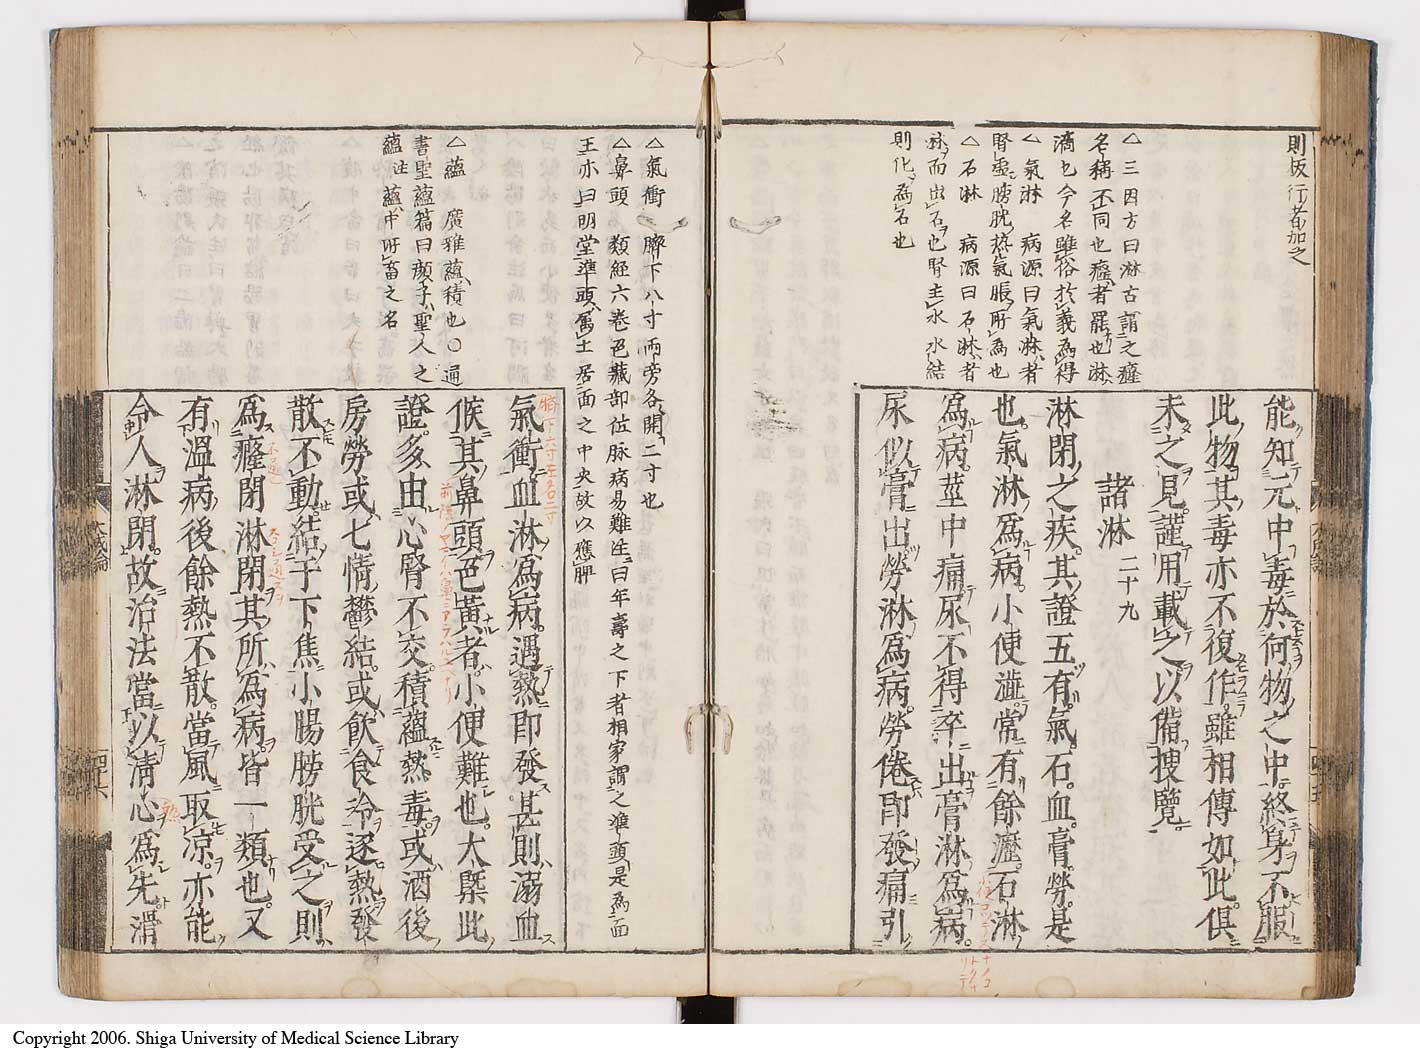 則板行ノ者加之
△三因方曰淋古謂之癃
名稱不同也癃者罷也淋
滴也今名雖俗於義為得
△氣淋　病源曰氣淋者
腎虚膀胱熱氣脹所為也
△石淋　病源曰石淋者
淋而出石也腎主水水結
則化為石也
能知元中毒於何物之中終身不服
此物其毒亦不復作雖相傳如此俱
未之見謹用載之以備搜覽
諸淋　二十九
淋閉之疾其證五有氣石血膏勞是
也氣淋為病小便澁常有餘瀝石淋
為病莖中痛尿不得卒出膏淋為病
尿似膏出勞淋為病勞倦即發痛引
△氣衝　臍下八寸兩旁各開二寸也
△鼻頭　類經六卷色藏部位脉病易難注曰年壽之下者相家謂之準頭是為面
王亦曰明堂準頭属土居面之中央故以應脾
△蘊　廣雅蘊積也〇通
書聖蘊篇曰顔子聖人之
蘊注蘊中所畜之名
氣衝血淋為病遇熱即發甚則溺血
候其鼻頭色黄者小便難也大槩此
證多由心腎不交積蘊熱毒或酒後
房勞或七情鬱結或飲食冷逐熱發
散不動結于下焦小腸膀胱受之則
為癃閉淋閉其所為病皆一類也又
有溫病後餘熱不散當風取涼亦能
令人淋閉故治法當以清心為先滑
大成論
四十六
Copyright 2006. Shiga University of Medical Science Library